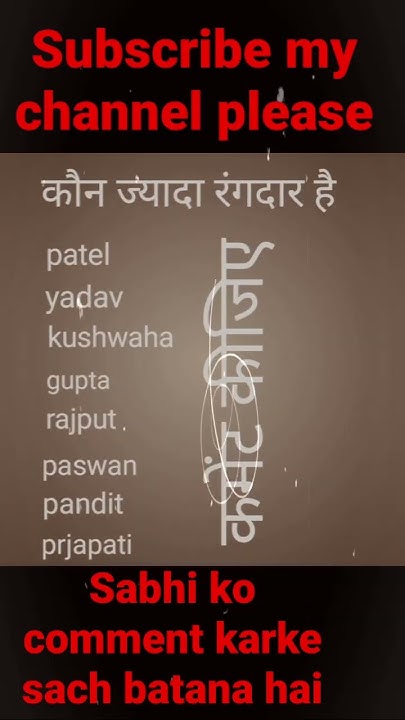 Subscribe my
channel please
कौन ज्यादा रंगदार है
patel
yadav
kushwaha
gupta
rajput.
paswan
pandit
prjapati
कमेंट कीजिए
Sabhi ko
comment karke
sach batana hai